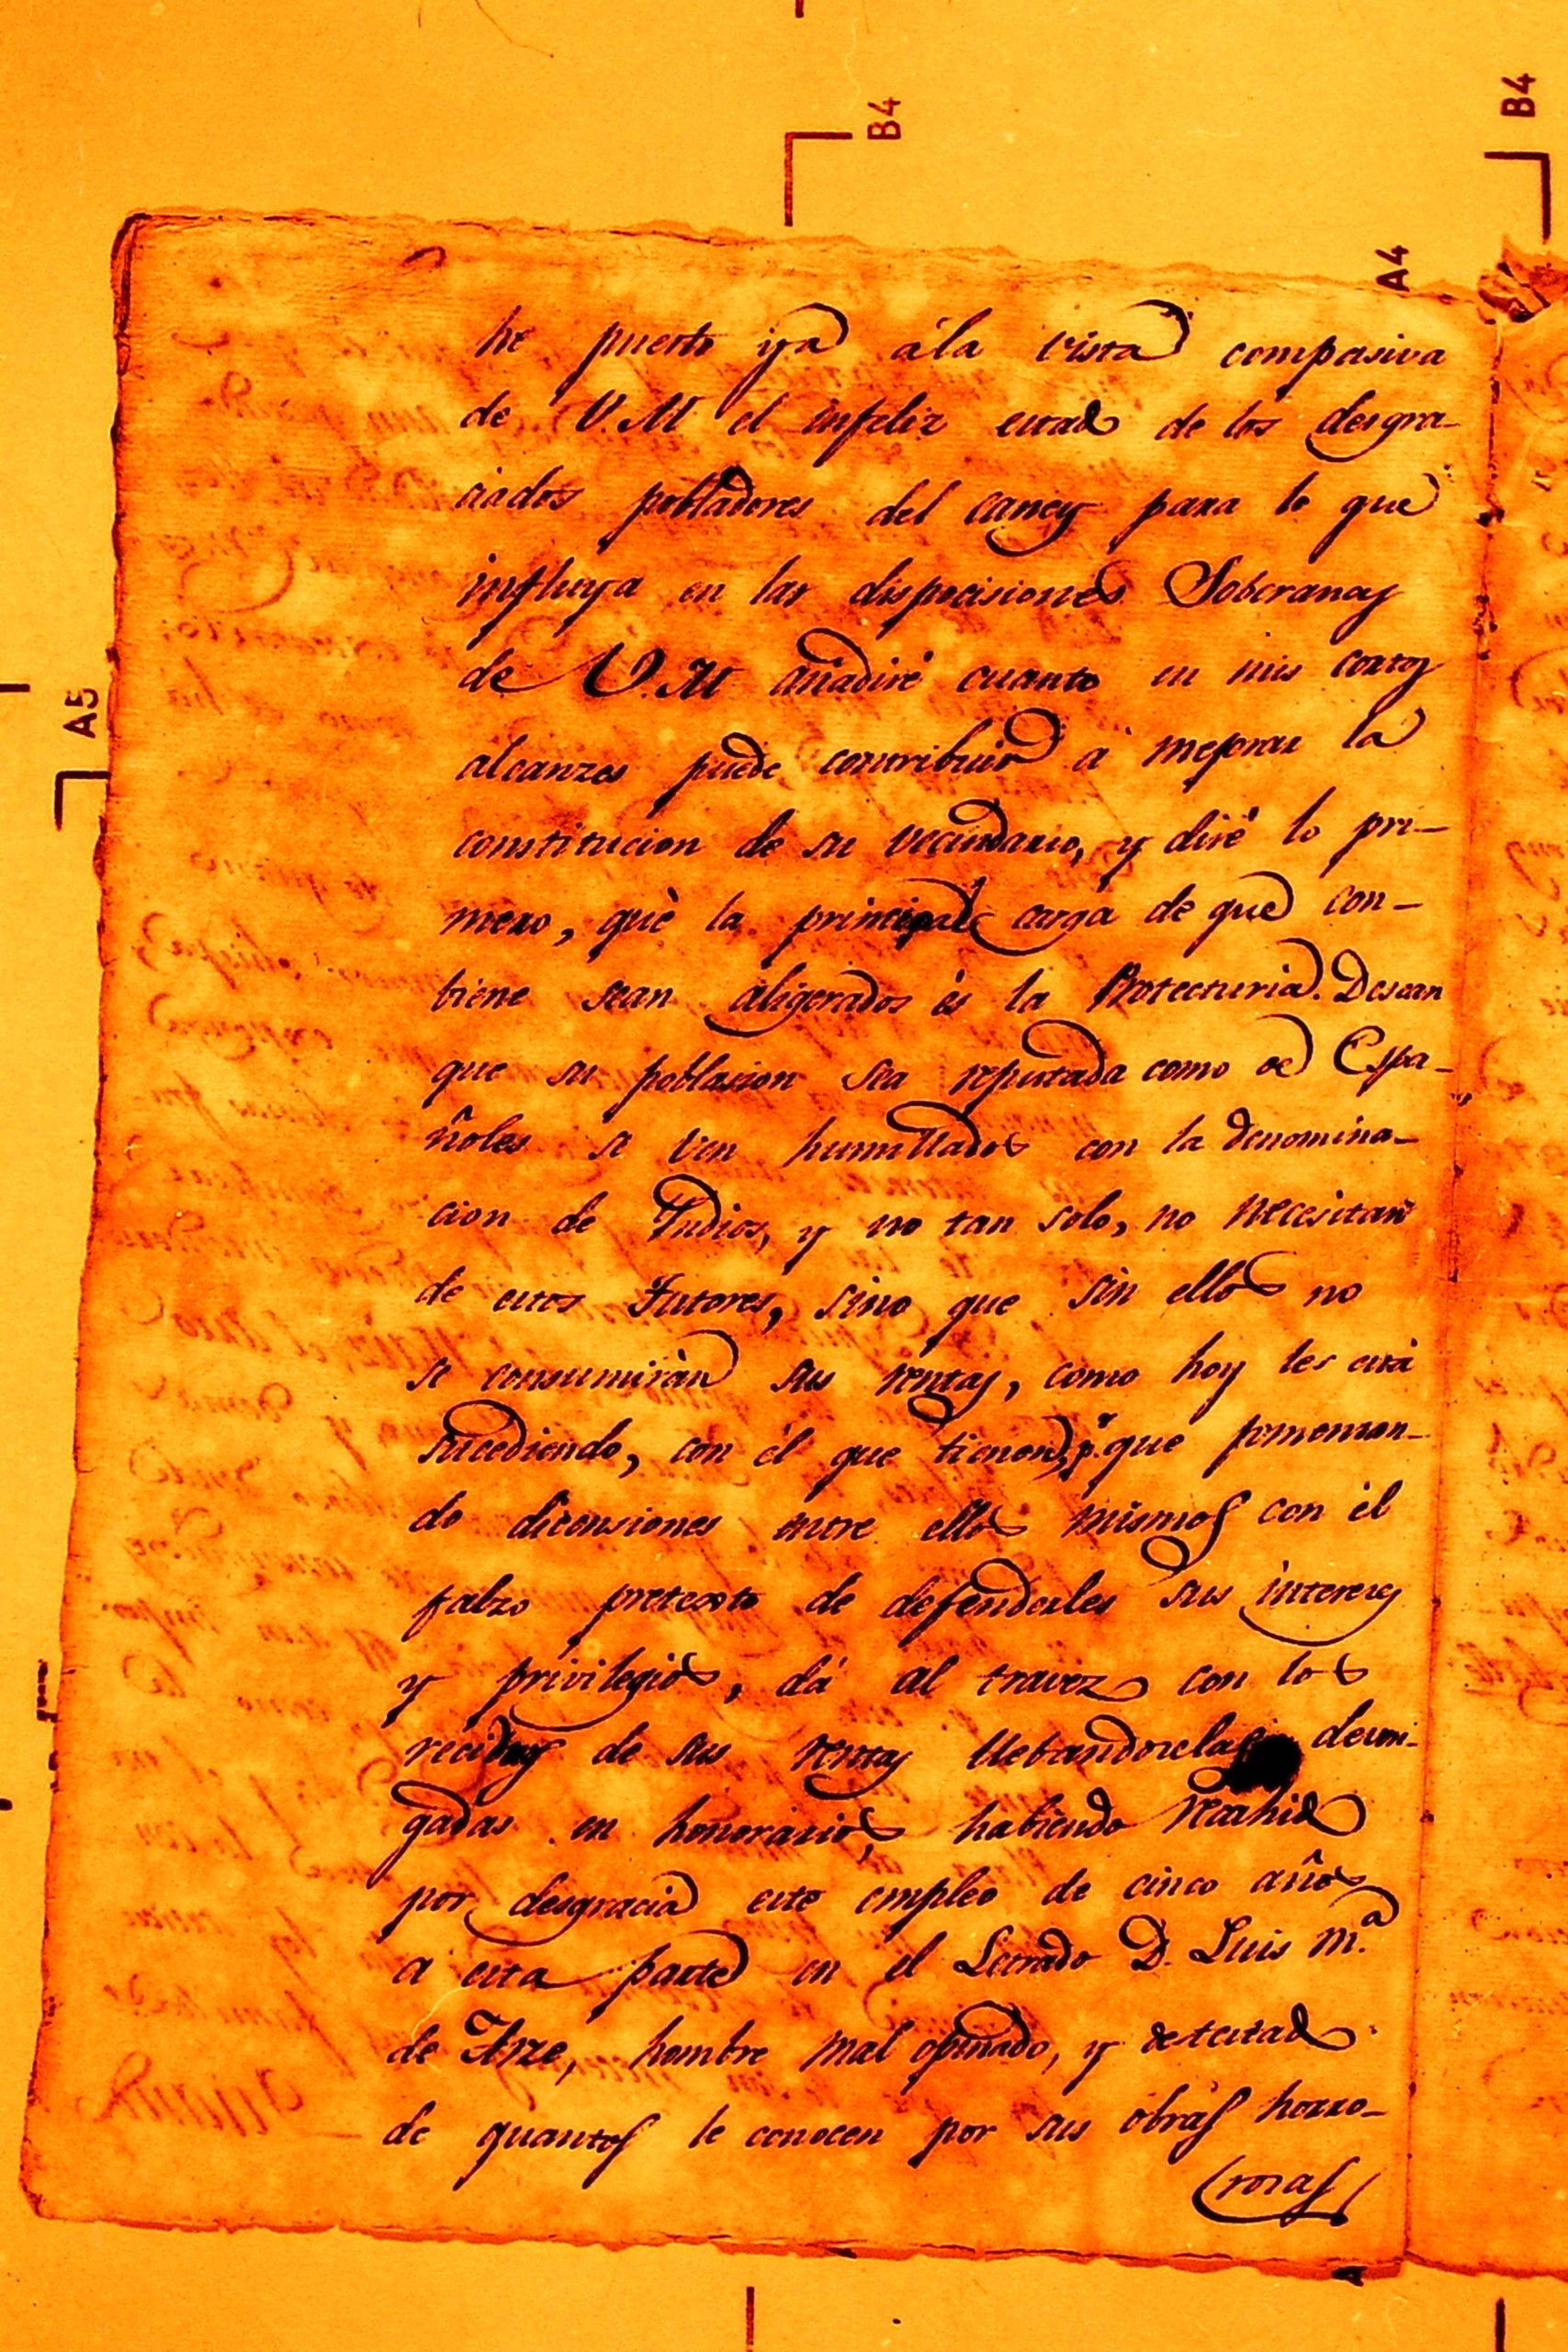 B4
B4
A4
A5
he puesto ya á la vista compasiva
de V.M el infeliz estado de los desgra-
ciados pobladores del caney para lo que
influya en las dispocisiones Soberanas
de V.M añadiré cuanto en mis cortos
alcanzes puede contribuir á mejorar la
constitucion de su vecindario, y diré lo pri-
mero, què la principal carga de que con-
biene sean aligerados ès la Protecturia. Desean
que su poblasion sea reputada como de Espa-
ñoles se ven humillados con la denomina-
cion de Yndios, y no tan solo, no necesitan
de estos Tutores, sino que sin ellos no
se consumiràn sus rentas, como hoy les está
sucediendo, con él que tienen, p.r que fomentan-
do dicensiones entre ellos mismos con èl
falzo pretexto de defenderles sus intereses
y privilegios, dá al travez con los
de sus rentas llebandoselas deven-
gadas en honorarios, habiendo recahido
por desgracia este empleo de cinco años
a esta parte en el Letrado D. Luis M.a
de Arze, hombre mal opinado, y detestado
de quantos le conocen por sus obras horro-
rosas